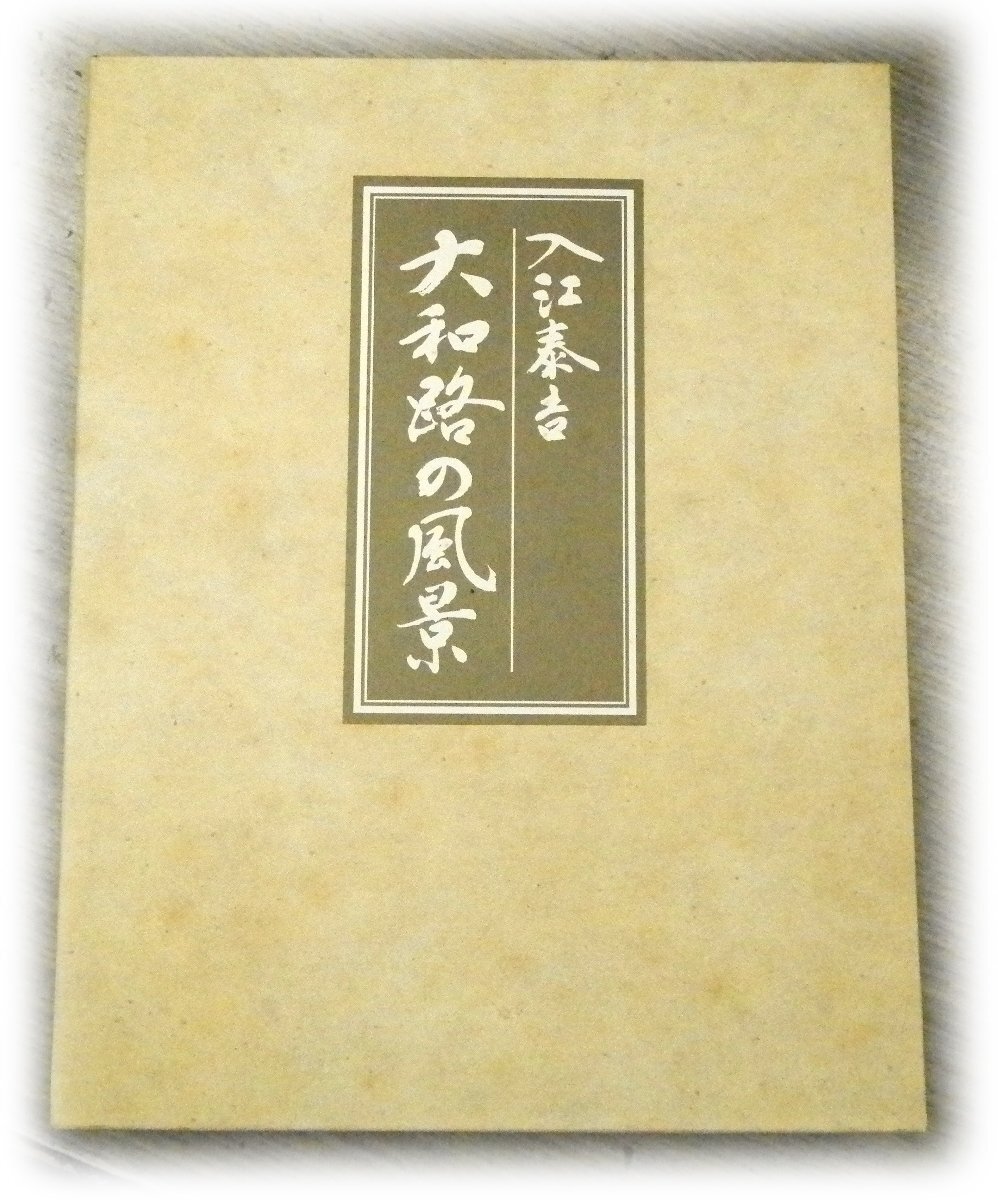 入江泰吉
大和路の風景